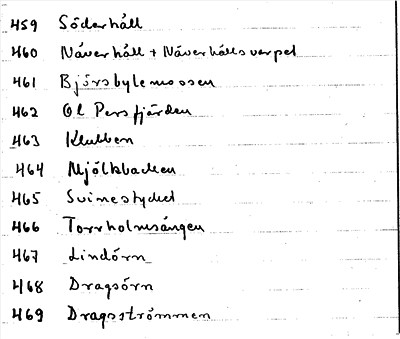 459 Söderhåll
460 Näverhåll + Näverhållsverpet
461 Björsbylemossen
462 Ol Persfjärden
463 Klubben
464 Mjölkbacken
465 Svinestycket
466 Torrholmsängen
467 Lindörn
468 Dragsörn
469 Dragsströmmen